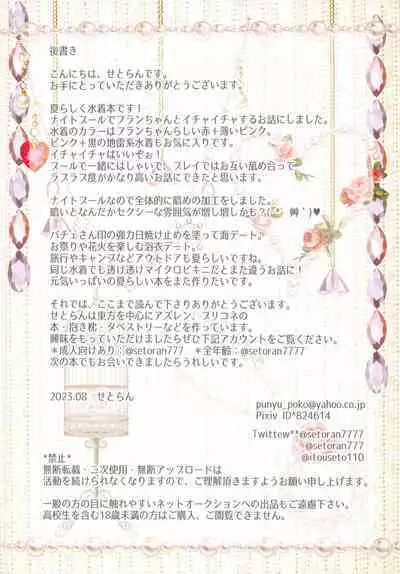 後書き
こんにちは、せとらんです。
お手にとっていただきありがとうございます。
夏らしく水着本です！
ナイトプールでフランちゃんとイチャイチャするお話にしました。
水着のカラーはフランちゃんらしい赤＋薄いピンク。
ピンク＋黒の地雷系水着もお気に入りです。
イチャイチャはいいぞぉ！
プールで一緒にはしゃいで、プレイではお互い舐め合って
ラブラブ度がかなり高いお話にできたと思います。
ナイトプールなので全体的に暗めの加工をしました。
暗いとなんだかセクシーな雰囲気が増し増しかも？
パチェさん印の強力日焼け止めを塗って海デート。
お祭りや花火を楽しむ浴衣デート。
旅行やキャンプなどアウトドアも夏らしいですね。
同じ水着でも透け透けマイクロビキニだとまた違うお話に！
元気いっぱいの夏らしい本をまた作りたいです。
それでは、ここまで読んで下さりありがとうございます。
せとらんは東方を中心にアズレン、プリコネの
本・抱き枕・タペストリーなどを作っています。
興味をもっていただけましたらぜひ下記アカウントをご覧ください。
*成人向けあり：@setoran777　*全年齢：@setoran7777
次の本でもお会いできましたらうれしいです。
2023.08　せとらん
punyu_poko@yahoo.co.jp
Pixiv ID*824614
Twittew**@setoran7777
@setoran777
@itouseto110
*禁止*
無断転載・二次使用・無断アップロードは
活動を続けられなくなりますので、ご理解頂きますようお願い申し上げます。
一般の方の目に触れやすいネットオークションへの出品もご遠慮下さい。
高校生を含む18歳未満の方はご購入、ご閲覧できません。